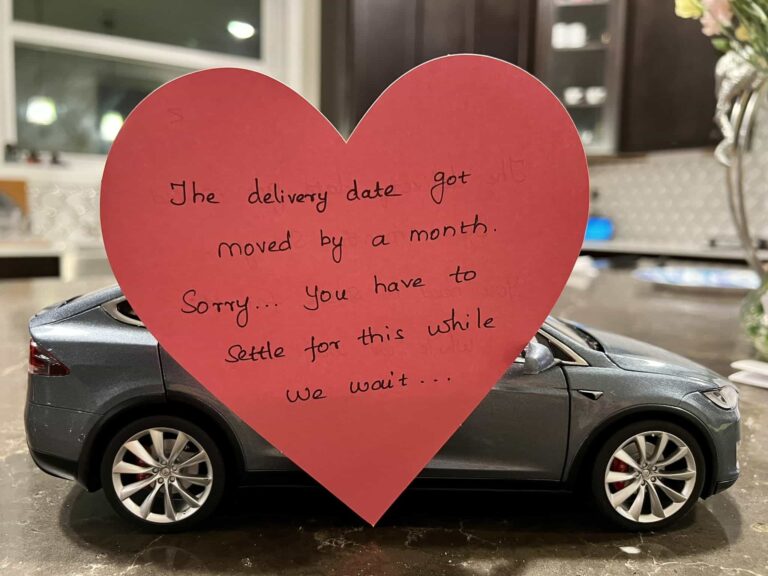 The delivery date got
moved by a month.
Sorry... You have to
settle for this while
we wait...